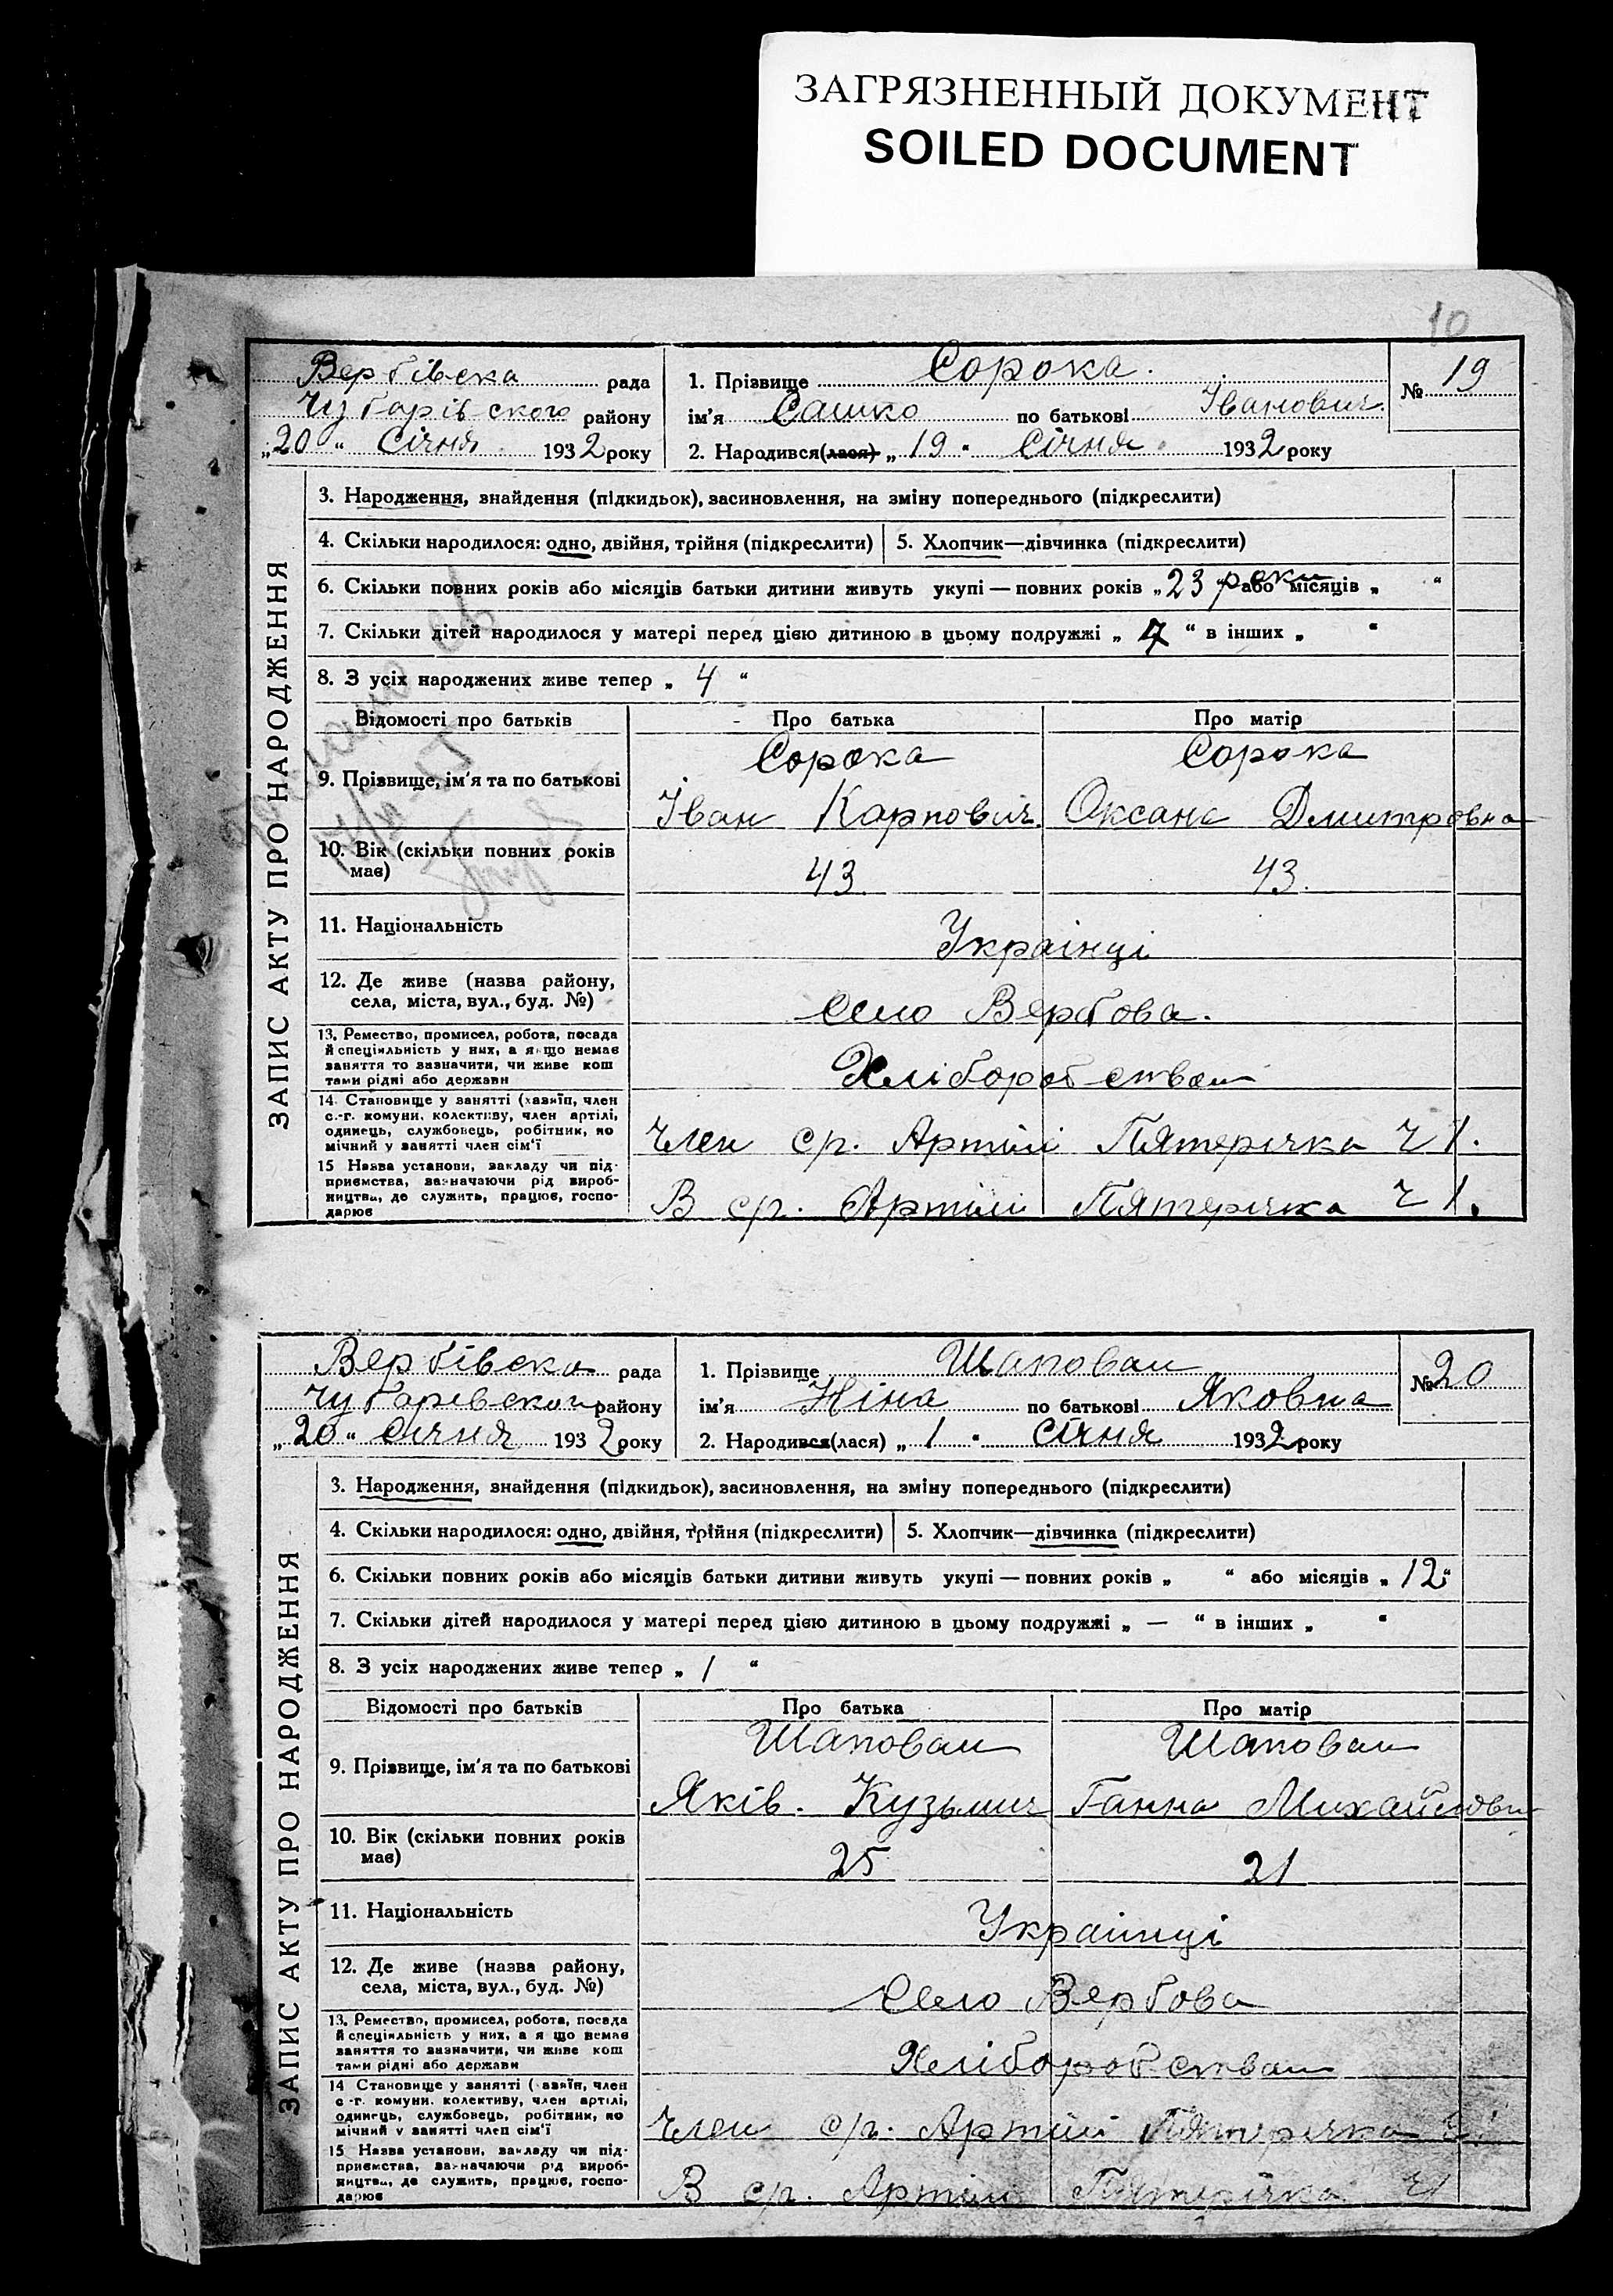 ЗАГРЯЗНЕННЫЙ ДОКУМЕНТ
SOILED DOCUMENT
10
Вербівска рада
Чубарівского району
„20" Січня 1932 року
1. Прізвище Сорока.
ім'я Сашко по батькові Іванович.
2. Народився(лася) „19" Січня 1932 року
№ 19
ЗАПИС АКТУ ПРО НАРОДЖЕННЯ
3. Народження, знайдення (підкидьок), засиновлення, на зміну попереднього (підкреслити)
4. Скільки народилося: одно, двійня, трійня (підкреслити)
5. Хлопчик—дівчинка (підкреслити)
6. Скільки повних років або місяців батьки дитини живуть укупі — повних років „23 роки" або місяців „ "
7. Скільки дітей народилося у матері перед цією дитиною в цьому подружжі „7" в інших „ "
8. З усіх народжених живе тепер „4"
Відомості про батьків
Про батька
Про матір
9. Прізвище, ім'я та по батькові
Сорока
Іван Карпович
Сорока
Оксана Дмитровна
10. Вік (скільки повних років
має)
43
43.
11. Національність
Українці
12. Де живе (назва району,
села, міста, вул., буд. №)
село Вербова.
13. Ремество, промисел, робота, посада
й спеціяльність у них, а якщо немає
заняття то зазначити, чи живе кош
тами рідні або держави
Хліборобством
14. Становище у занятті (хазяїн, член
с.-г. комуни, колективу, член артілі,
одинець, службовець, робітник, по
мічний у занятті член сім'ї
Член ср. Артілі Пятерічка ч 1.
15 Назва установи, закладу чи під-
приємства, зазначаючи рід вироб-
ництва, де служить, працює, госпо-
дарює
В ср. Артілі Пятерічка ч 1.
Вербівска рада
Чубарівского району
„20" січня 1932 року
1. Прізвище Шаповал
ім'я Ніна по батькові Яковна
2. Народився(лася) „1" Січня 1932 року
№ 20
ЗАПИС АКТУ ПРО НАРОДЖЕННЯ
3. Народження, знайдення (підкидьок), засиновлення, на зміну попереднього (підкреслити)
4. Скільки народилося: одно, двійня, трійня (підкреслити)
5. Хлопчик—дівчинка (підкреслити)
6. Скільки повних років або місяців батьки дитини живуть укупі — повних років „ " або місяців „12"
7. Скільки дітей народилося у матері перед цією дитиною в цьому подружжі „—" в інших „ "
8. З усіх народжених живе тепер „1"
Відомості про батьків
Про батька
Про матір
9. Прізвище, ім'я та по батькові
Шаповал
Яків. Кузьмич
Шаповал
Ганна Михайловн
10. Вік (скільки повних років
має)
25
21
11. Національність
Українці
12. Де живе (назва району,
села, міста, вул., буд. №)
село Вербова
13. Ремество, промисел, робота, посада
й спеціяльність у них, а якщо немає
заняття то зазначити, чи живе кош
тами рідні або держави
Хліборобством
14 Становище у занятті (хазяїн, член
с-г. комуни, колективу, член артілі,
одинець, службовець, робітник, по
мічний у занятті член сім'ї
Член ср. Артілі Пятерічка ч 1
15 Назва установи, закладу чи під-
приємства, зазначаючи рід вироб-
ництва, де служить, працює, госпо-
дарює
В ср. Артілі Пятерічка ч 1